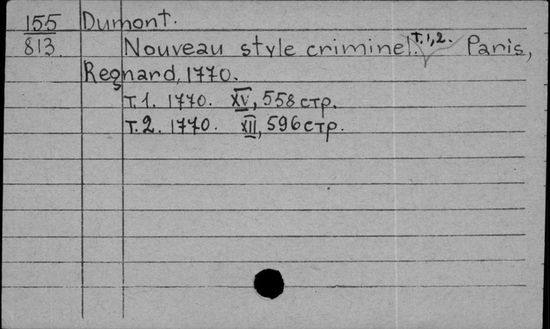 155 Dumont.
813. Nouveau style criminel. T. 1, 2. Paris,
Regnard, 1770.
T. 1. 1770. XV, 558 стр.
T. 2. 1770. XII, 596 стр.